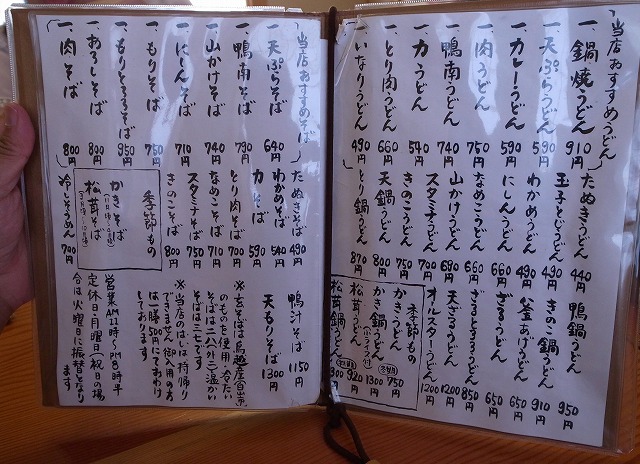 当店おすすめうどん
一、鍋焼うどん 910円
一、天ぷらうどん 590円
一、カレーうどん 590円
一、肉うどん 750円
一、鴨南うどん 740円
一、力うどん 540円
一、とり肉うどん 660円
一、いなりうどん 490円
たぬきうどん 440円
玉子とじうどん 490円
わかめうどん 490円
にしんうどん 660円
なめこうどん 660円
山かけうどん 690円
スタミナうどん 700円
きのこうどん 750円
天鍋うどん 800円
とり鍋うどん 870円
鴨鍋うどん 950円
きのこ鍋うどん 910円
釜あげうどん 650円
ざるうどん 650円
850円
天ざるうどん 1200円
オールスターうどん 1200円
季節もの
かきうどん 750円
かき鍋うどん 1300円
松茸うどん 920円
松茸鍋うどん 1300円
当店おすすめそば
一、天ぷらそば 640円
一、鴨南そば 790円
一、山かけそば 740円
一、にしんそば 710円
一、もりそば 750円
一、もりとろろそば 950円
一、おろしそば 800円
一、肉そば 800円
たぬきそば 490円
わかめそば 540円
力そば 590円
とり肉そば 700円
なめこそば 710円
スタミナそば 750円
きのこそば 800円
季節もの
かきそば
松茸そば
冷しそうめん 700円
鴨汁そば 1150円
天もりそば 1300円
のものを使用 冷たい
そばは二八(外二)温かい
そばは三七です
※当店のだしは持帰り
できません 御入用の方
は一膳500円にておわけ
しております
営業AM11時〜PM8時半
定休日・月曜日(祝日の場
合は火曜日に振替となり
ます